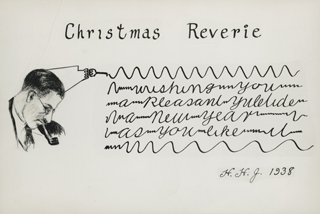 Christmas Reverie
wishing you
a Pleasant Yuletide
a New Year
as you like it
H.H.J. 1938